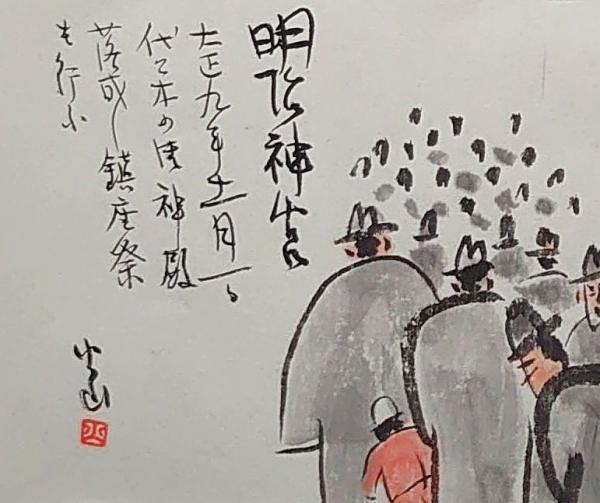 明治神宮
大正九年十一月一日
代々木の神殿
落成し鎮座祭
を行ふ